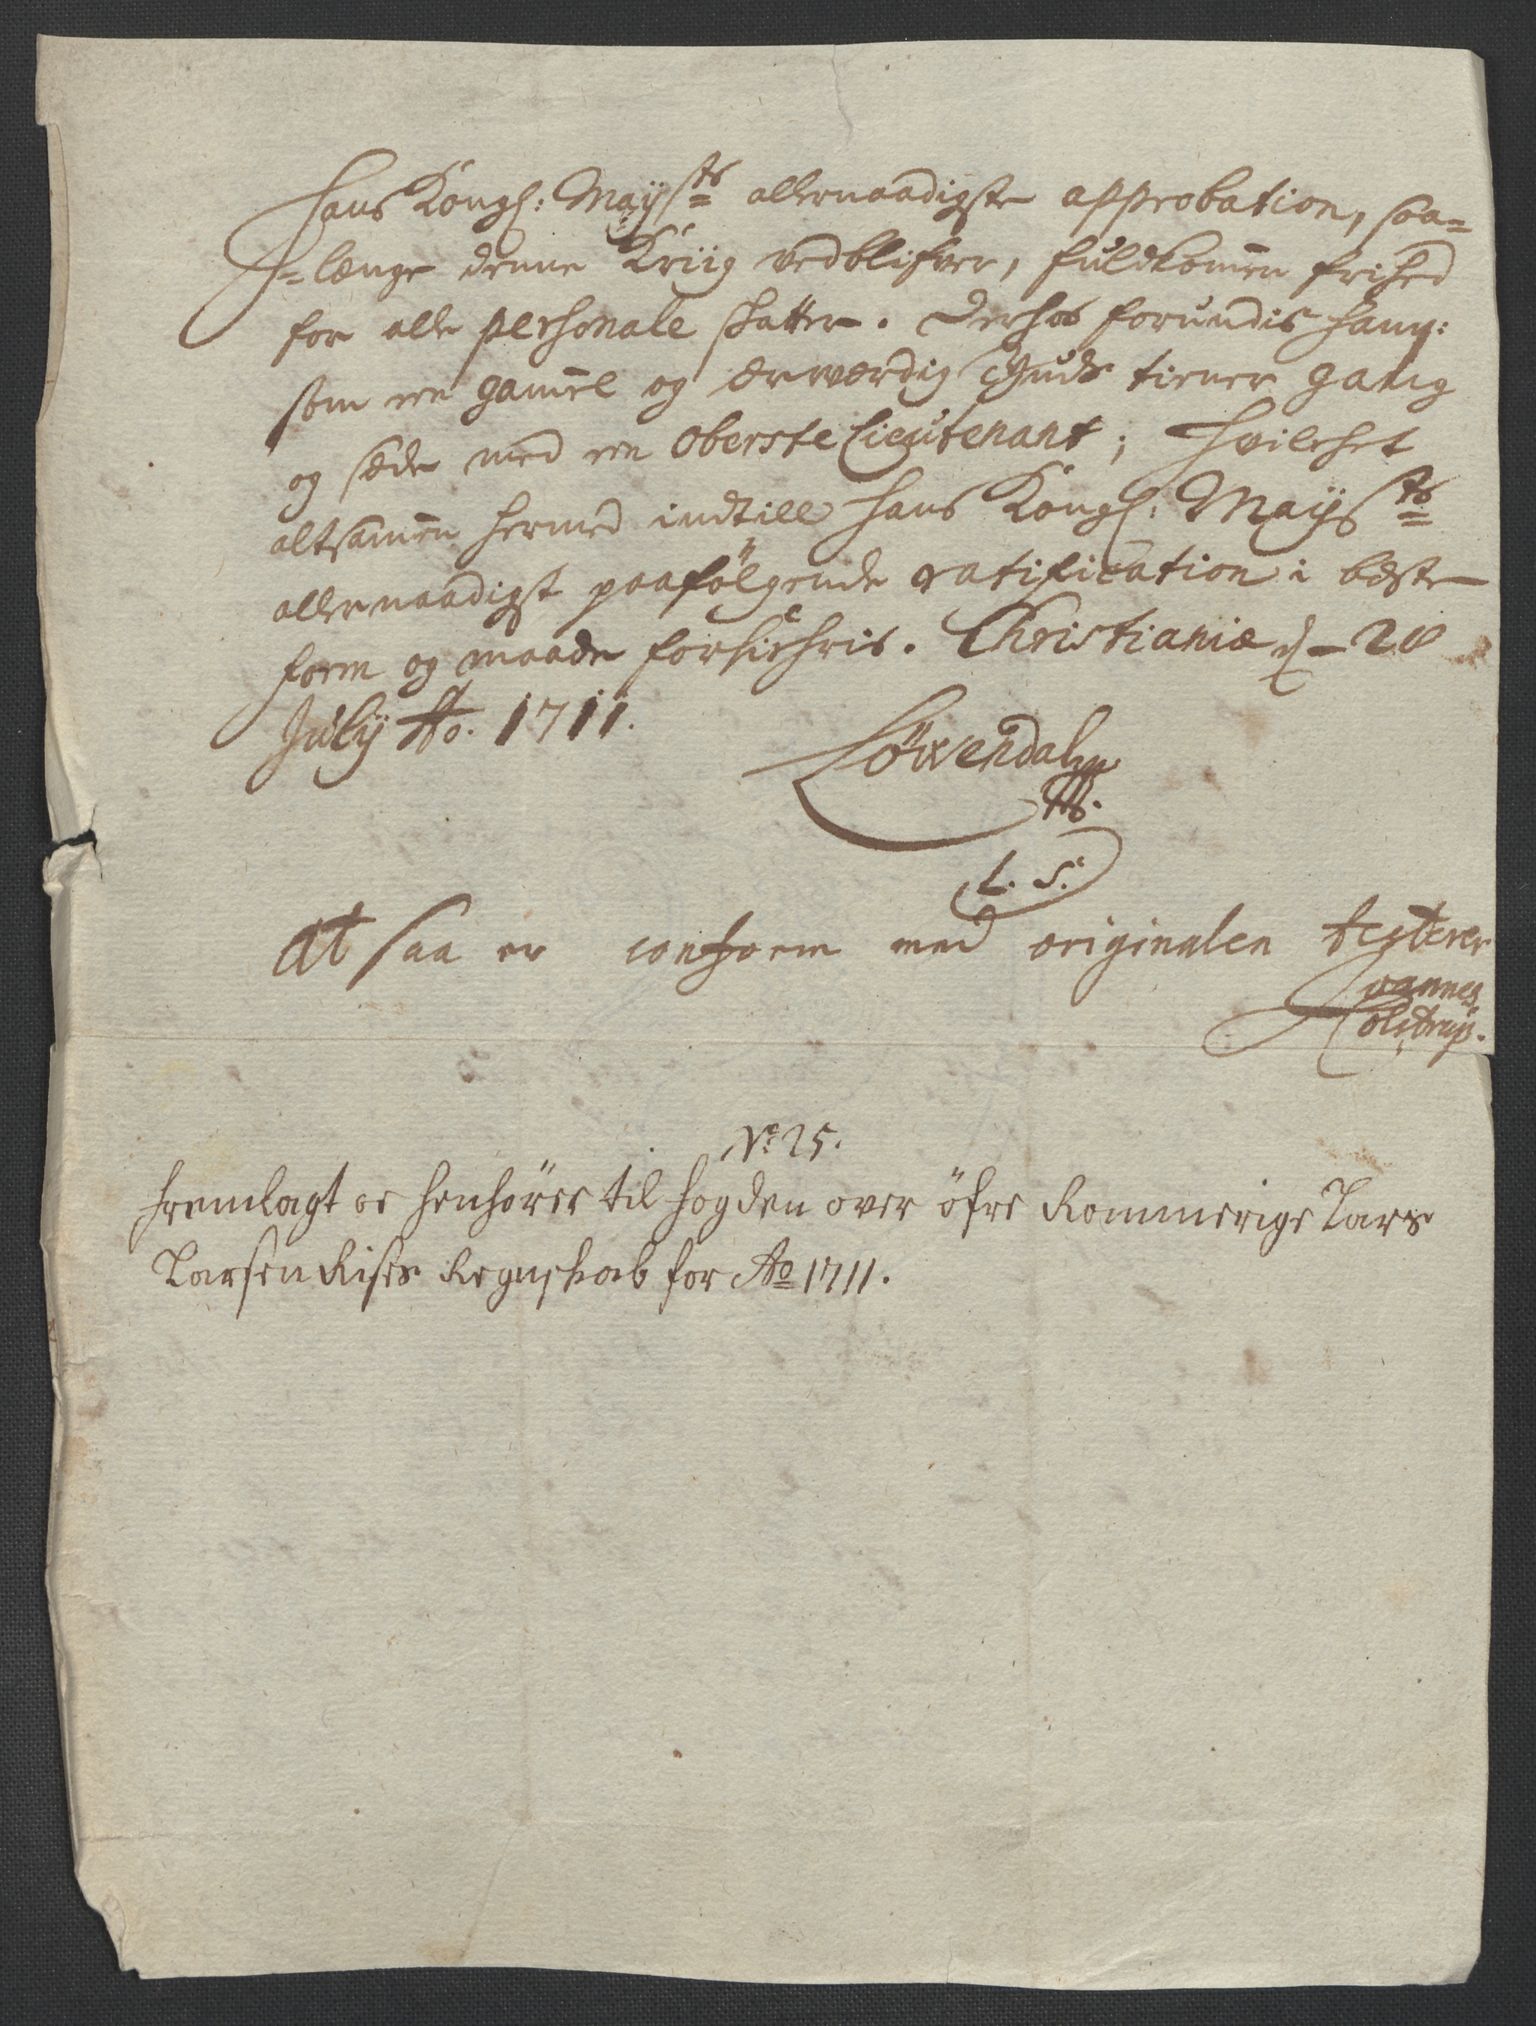 Hans Kongl: Mayſts allernaadigste approbation, saa-
-længe denne Kriig vedblifver, fuldkomen frihed
for alle personale skatter. Derhos forundis hanɳ:
som en gamel og ærværdig Guds tiener gang
og sæde med en Oberste Lieutenant; hvilchet
altsamen hermed indtill hans Kongl: Maysts
allernaadigst paafølgende ratification i beste
form og maade forsichris. Christianiæ d 20
July Ao. 1711.
Löwendahl
L. S.
At saa er conform med originalen testerer
Joannes
Colstrup.
No 25.
fremlagt oc henhörer til fogden over öfre Rommerige Lars
Larsen Rises Regnskab for Ao 1711.